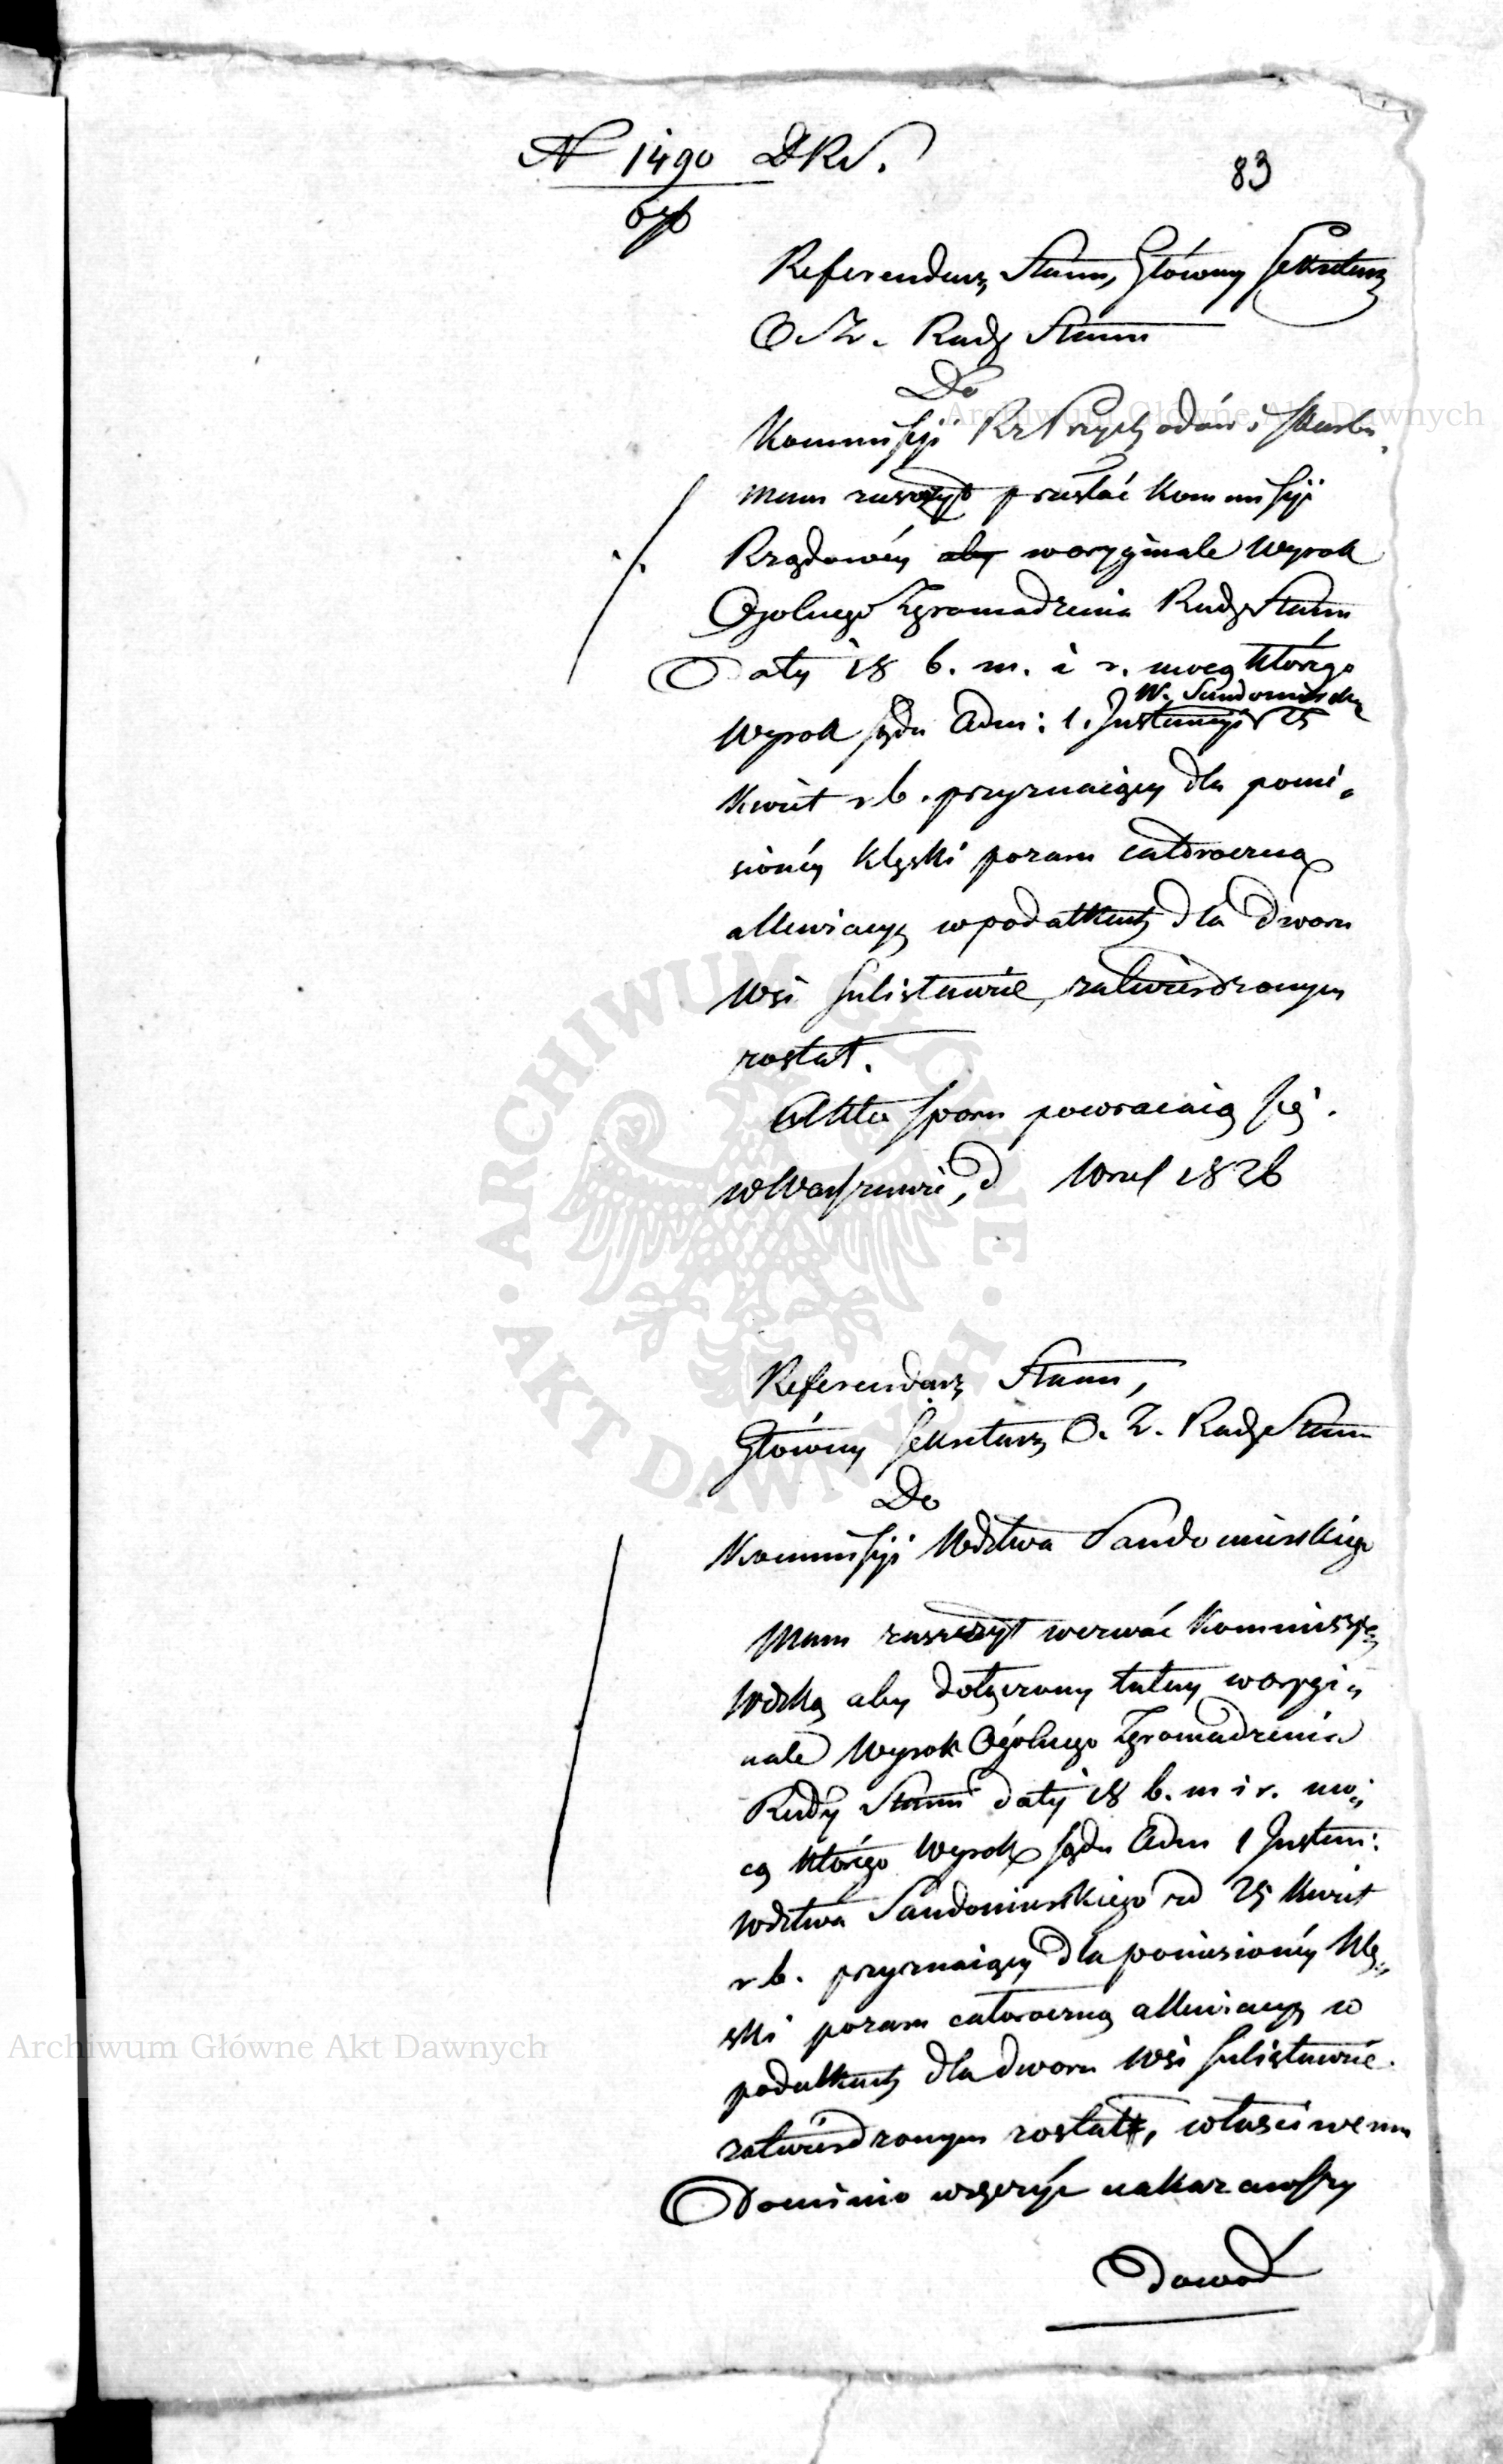 N 1490 DKS.
83
Referendarz Stanu, Główny Sekretarz
O. Z. Rady Stanu
Do
Kommissyi Rz Przychodów i Skarbu.
Mam zaszczyt przesłać Kommissyi
Rządowéy aby woryginale Wyrok
Ogolnego Zgromadzenia Rady Stanu
Daty 18 b. m. i r. mocą którego
W. Sandomirskiego
Wyrok Sądu Adm: 1. Instancyi 25
Kwiet r b. przyznaiący dla ponie-
sionéy klęski pożaru całoroczną
allewiacyą wpodatkach dla dworu
Wsi Sulisławice, zatwierdzonym
został.
Akta sporu powracaią się.
w Warszawie, d Wrześ 1826
Referendarz Stanu,
Główny Sekretarz O. Z. Rady Stanu
Do
Kommissyi Wdztwa Sandomierskiego
Mam zaszczyt wezwać Kommissyą
Wdzką aby dołączony tutay worygi-
nale Wyrok Ogólnego Zgromadzenia
Rady Stanu daty 18 b. m i r. mo-
cą którego Wyrok Sądu Adm 1 Instan:
Wdztwa Sandomierskiego od 25 Kwiet
r b. przyznaiący dla poniesionéy klę-
ski pożaru całoroczną allewiacyą w
podatkach dla dworu Wsi Sulisławice.
zatwierdzonym został, właściwemu
Dominio wręczyć nakazawszy
Dowod
Archiwum Główne Akt Dawnych
Archiwum Główne Akt Dawnych
ARCHIWUM GŁÓWNE
AKT DAWNYCH